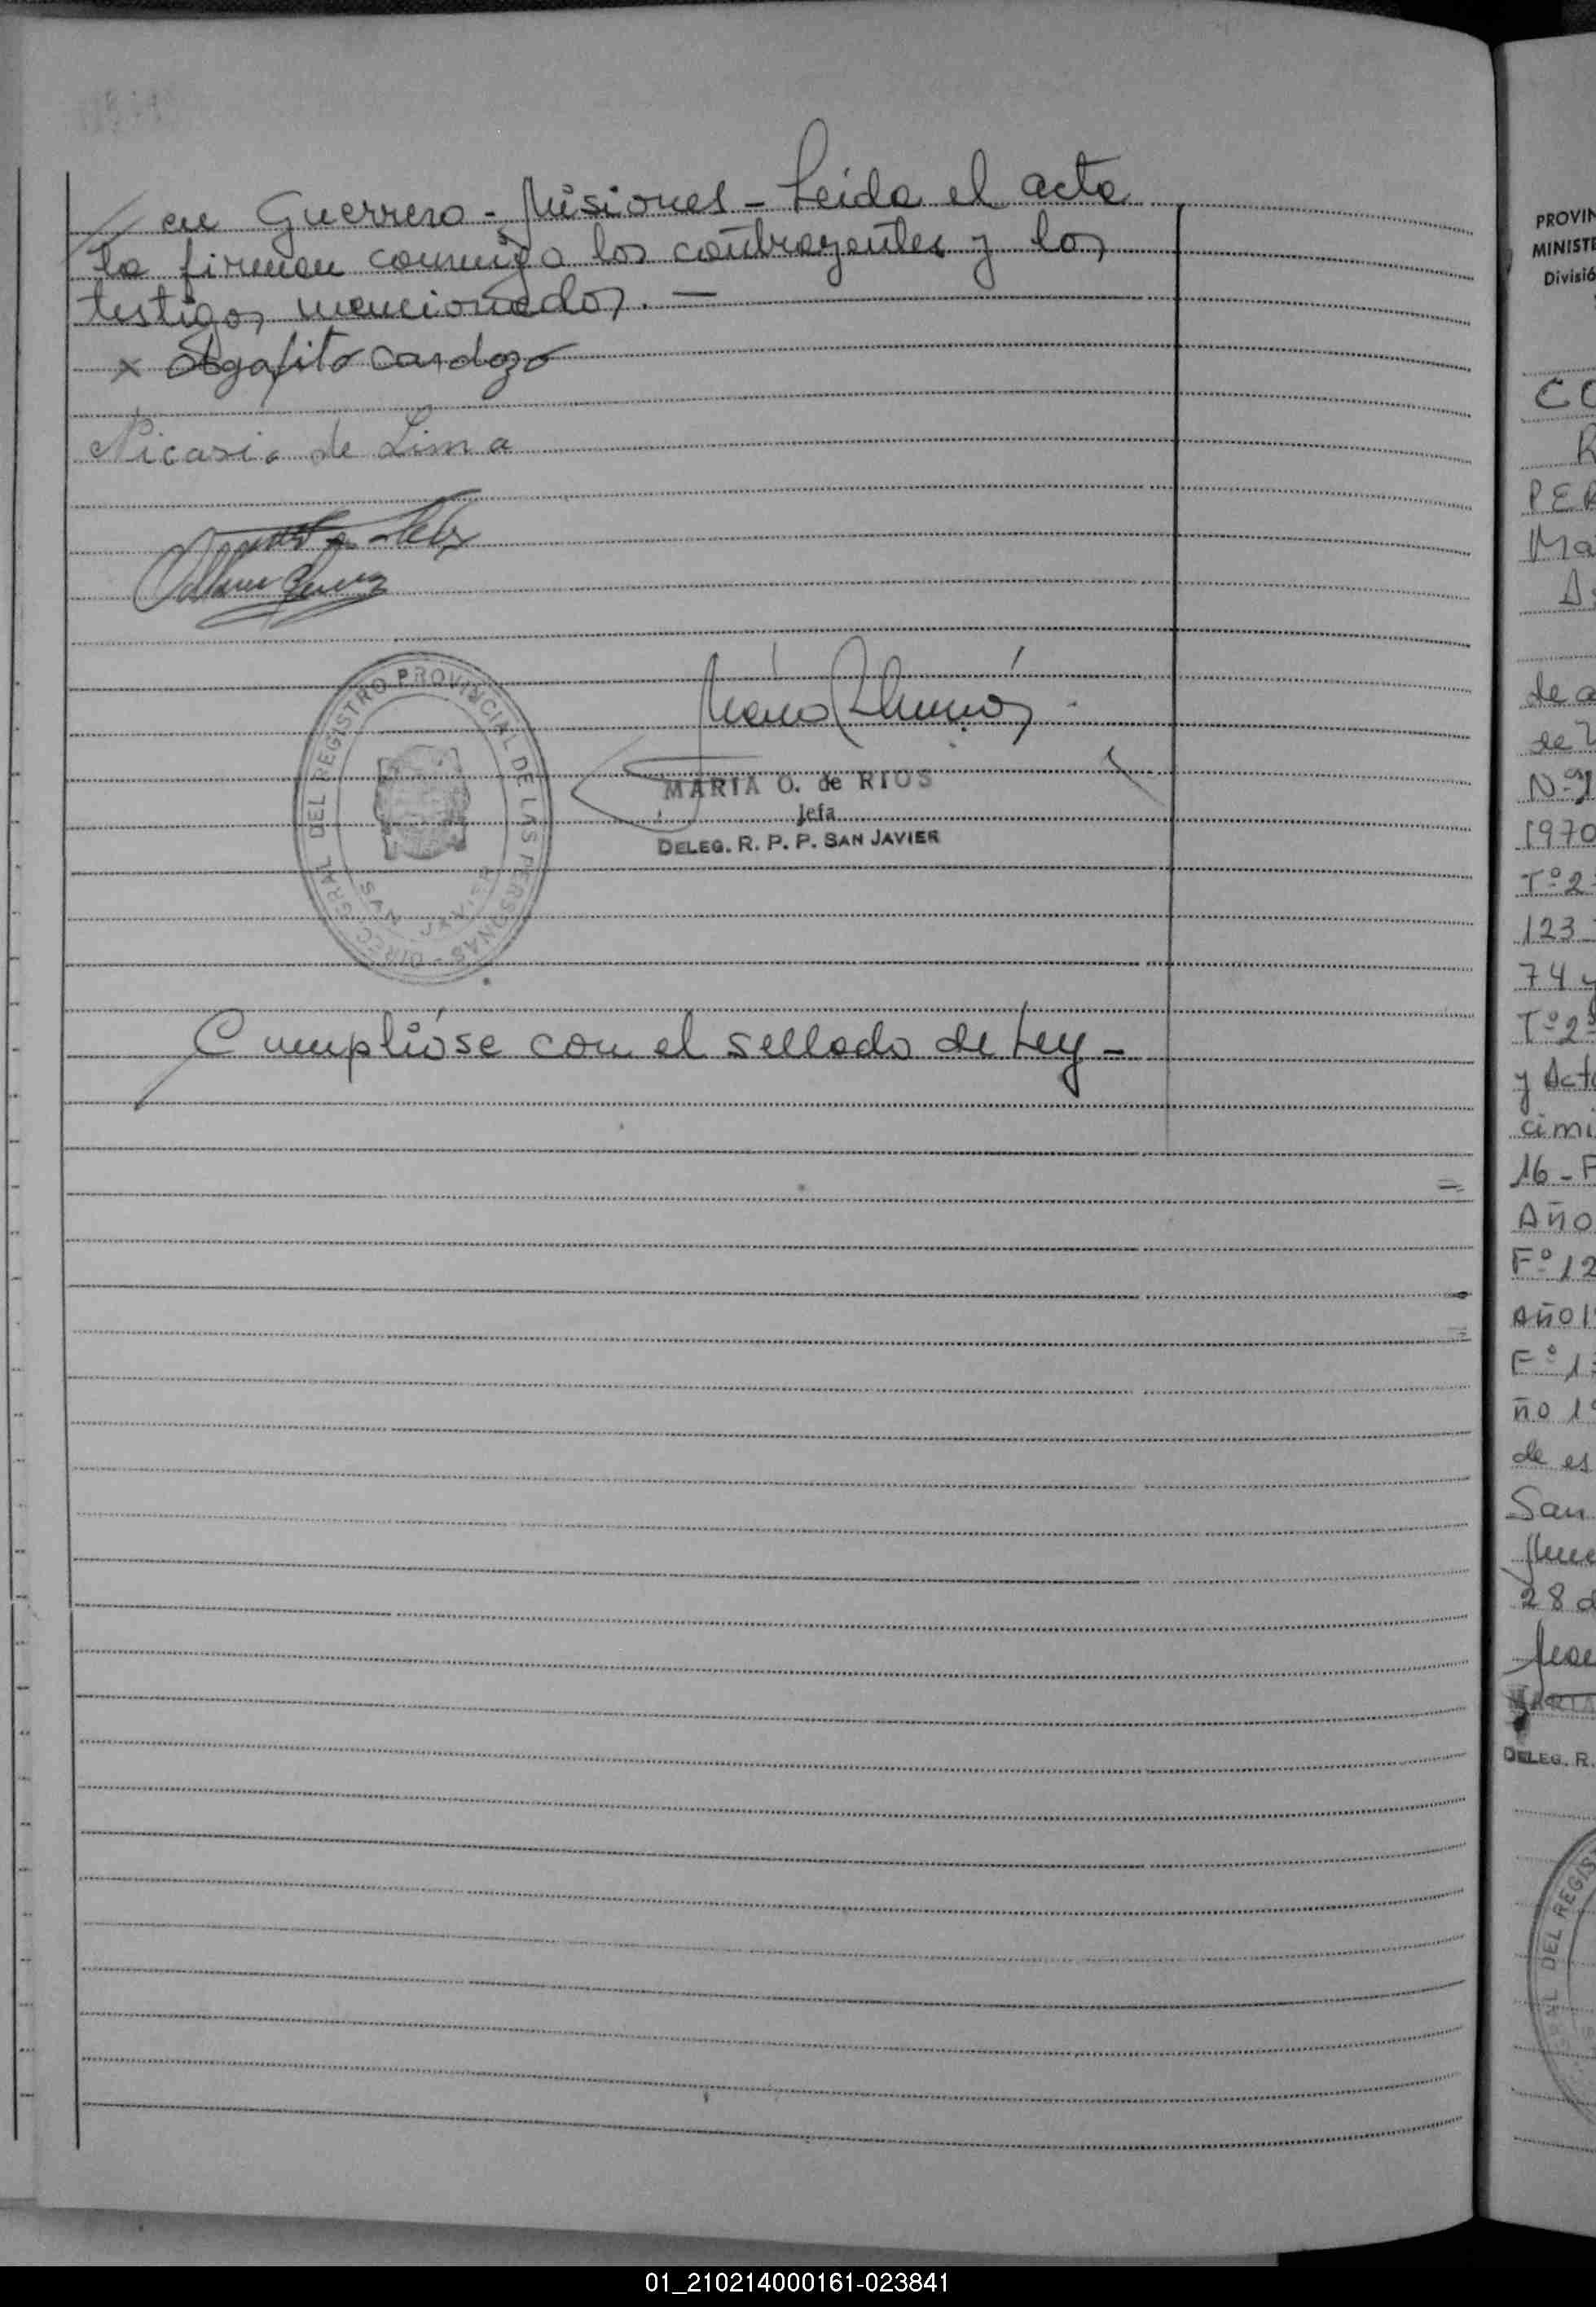 en Guerrero - Misiones - Leída el acta
la firman conmigo los contrayentes y los
testigos mencionados. -
x Agapito Cardozo
Nicasia de Lima
DIREC. GRAL. DEL REGISTRO PROVINCIAL DE LAS PERSONAS
SAN JAVIER
MARIA O. de RIOS
Jefa
DELEG. R. P. P. SAN JAVIER
Cumplióse con el sellado de Ley -
PROVIN
MINISTE
Divisió
CO
R
PER
Ma
de a
de
Nº
1970
Tº 2
123
74 y
Tº 2
y Acta
cimi
16 - F
Año
Fº 12
Año 1
Fº 1
ño 19
de es
San
28 d
MARIA
DELEG. R.
DEL REGIS
01_210214000161-023841